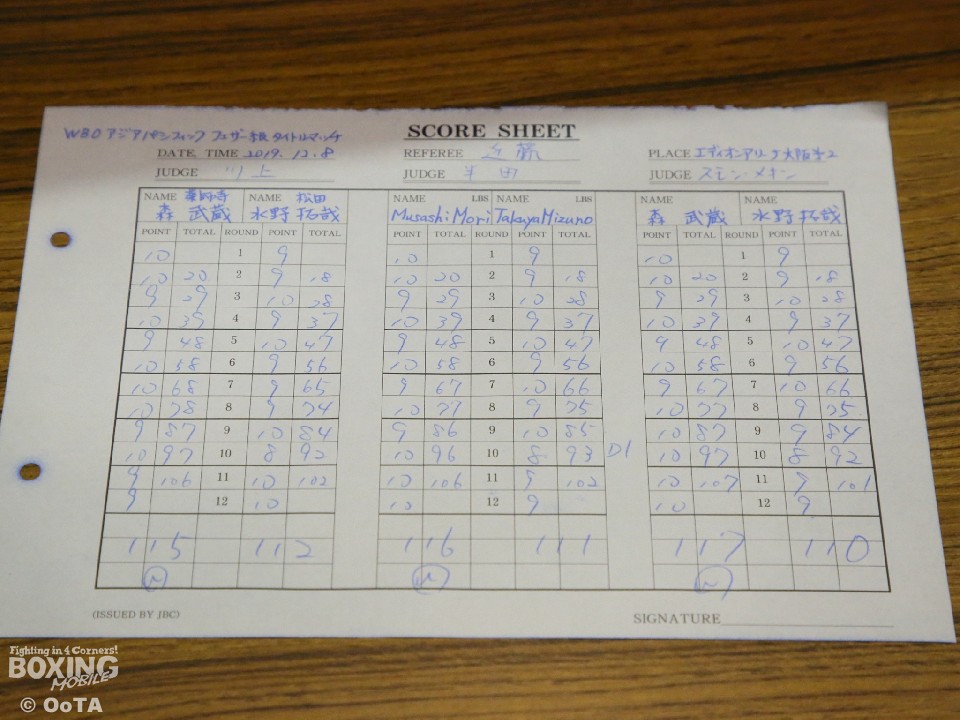 SCORE SHEET
WBO アジアパシフィック フェザー級 タイトルマッチ
DATE, TIME 2019. 12. 8 REFEREE 近藤 PLACE エディオンアリーナ大阪第2
JUDGE 川上 JUDGE 半田 JUDGE
NAME 薬師寺 NAME 松田 NAME LBS NAME LBS NAME NAME
森 武蔵 水野 拓哉 Musashi Mori Takuya Mizuno 森 武蔵 水野 拓哉
POINT TOTAL ROUND POINT TOTAL POINT TOTAL ROUND POINT TOTAL POINT TOTAL ROUND POINT TOTAL
10 1 9 10 1 9 10 1 9
10 20 2 9 18 10 20 2 9 18 10 20 2 9 18
9 29 3 10 28 9 29 3 10 28 9 29 3 10 28
10 39 4 9 37 10 39 4 9 37 10 39 4 9 37
9 48 5 10 47 9 48 5 10 47 9 48 5 10 47
10 58 6 9 56 10 58 6 9 56 10 58 6 9 56
10 68 7 9 65 9 67 7 10 66 9 67 7 10 66
10 78 8 9 74 10 77 8 9 75 10 77 8 9 75
9 87 9 10 84 9 86 9 10 85 10 87 9 9 84
10 97 10 8 92 10 96 10 8 93 D1 10 97 10 8 92
9 106 11 10 102 10 106 11 9 102 10 107 11 9 101
9 12 10 10 12 9 10 12 9
115 112 116 111 117 110
(ISSUED BY JBC) SIGNATURE
Fighting in 4 Corners!
BOXING
MOBILE
© OoTA